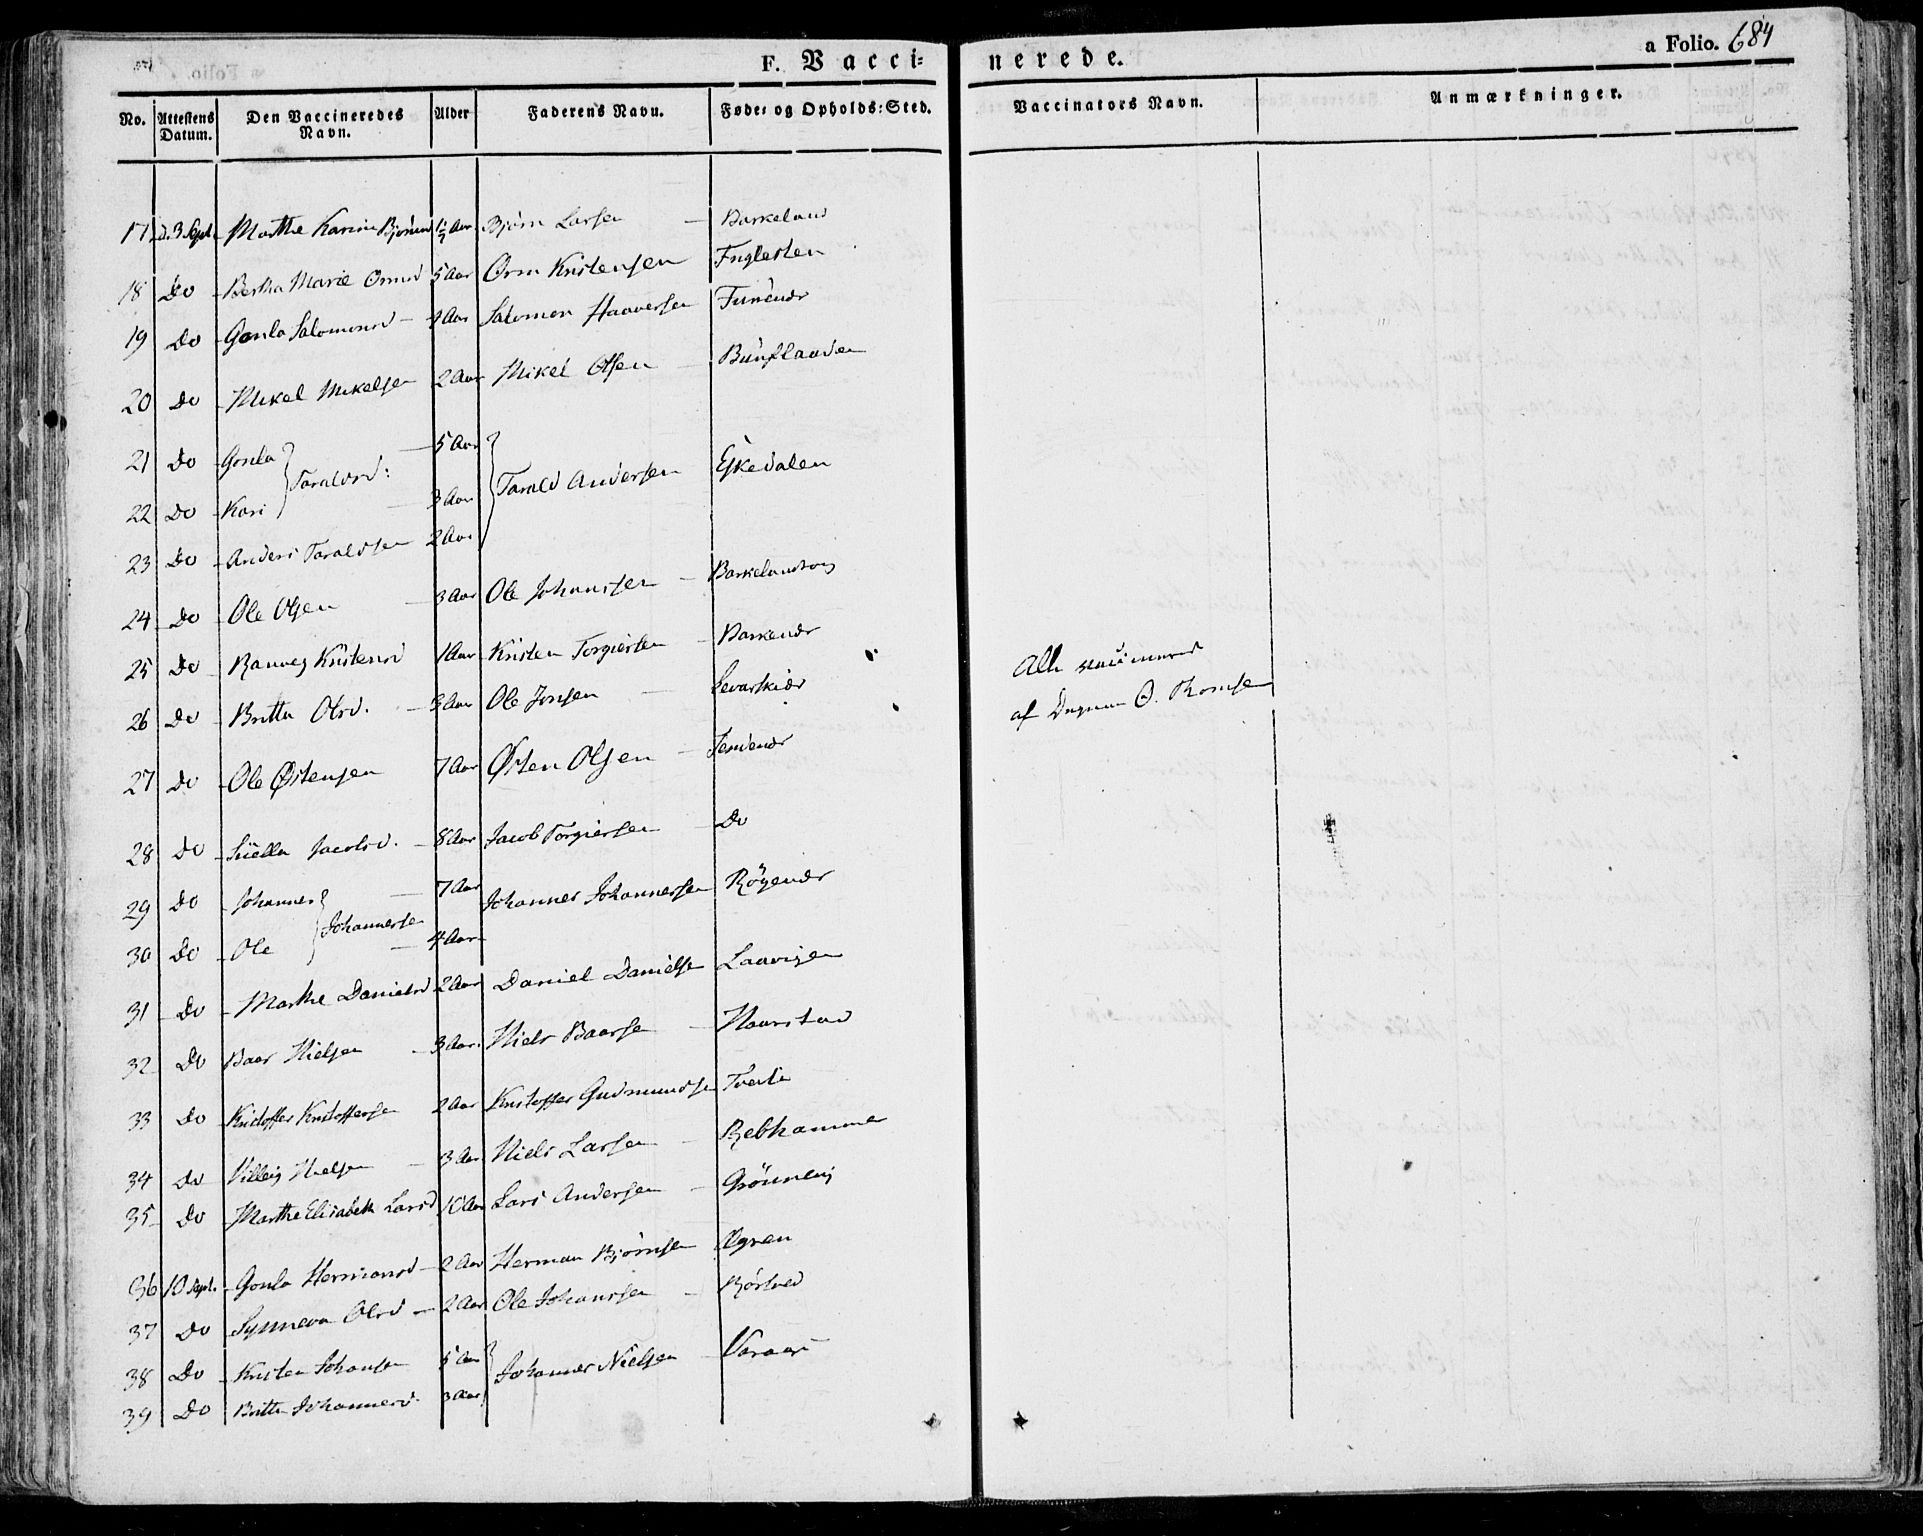 F. Vacci= nerede.
a Folio. 684
No. Attestens Datum. Den Vaccineredes Navn. Alder Faderens Navn. Føde= og Opholds=Sted. Vaccinators Navn. Anmærkninger.
17 d. 3 Sept. Marthe Karine Bjørnsd Aar Bjørn Larsen — Barkeland
18 Do Bertha Marie Ormsd 5 Aar Orm Kristensen Fuglesten
19 Do Gonla Salomonsd — 4 Aar Salomon Haaversen
20 Do Mikel Mikelsen 2 Aar Mikel Olsen —
21 Do Gonla Taraldsd: — 5 Aar Tarald Andersen Eskedalen
22 Do Kari — 3 Aar
23 Do Anders Taraldsen 2 Aar
24 Do Ole Olsen — 3 Aar Ole Johansen —
25 Do Ranveg Kristensd 1 Aar Kristen Torgiersen —
26 Do Britta Olsd. — 3 Aar Ole Jonsen —
Alle vaccinered
af O. Thomsen
27 Do Ole Østensen 7 Aar Østen Olsen —
28 Do Jacobsd. — 8 Aar Jacob Torgiersen — Do
29 Do Johannes Johannessen — 7 Aar Johannes Johannessen
30 Do Ole — 4 Aar
31 Do Marthe Danielsd 2 Aar Daniel Danielsen Laavigen
32 Do Baar Nielsen — 3 Aar. Niels Baarsen — Haarstad
33 Do Kristoffer Kristoffersen 2 Aar Kristoffer Gudmundsen Tveita
34 Do Nielsen — 3 Aar Niels Larsen — Rebhammer
35 Do Marthe Elisabeth Larsd 10 Aar Lars Andersen —
36 10 Sept. Gonla Hermansd — 2 Aar Herman Bjørnsen
37 Do Synneva Olsd — 2 Aar Ole Johansen —
38 Do Kristen Johansen 5 Aar Johannes Nielsen
39 Do Britta Johannesd. 3 Aar